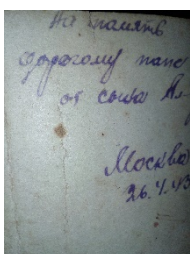 На память
дорогому папе
от сына
Москва